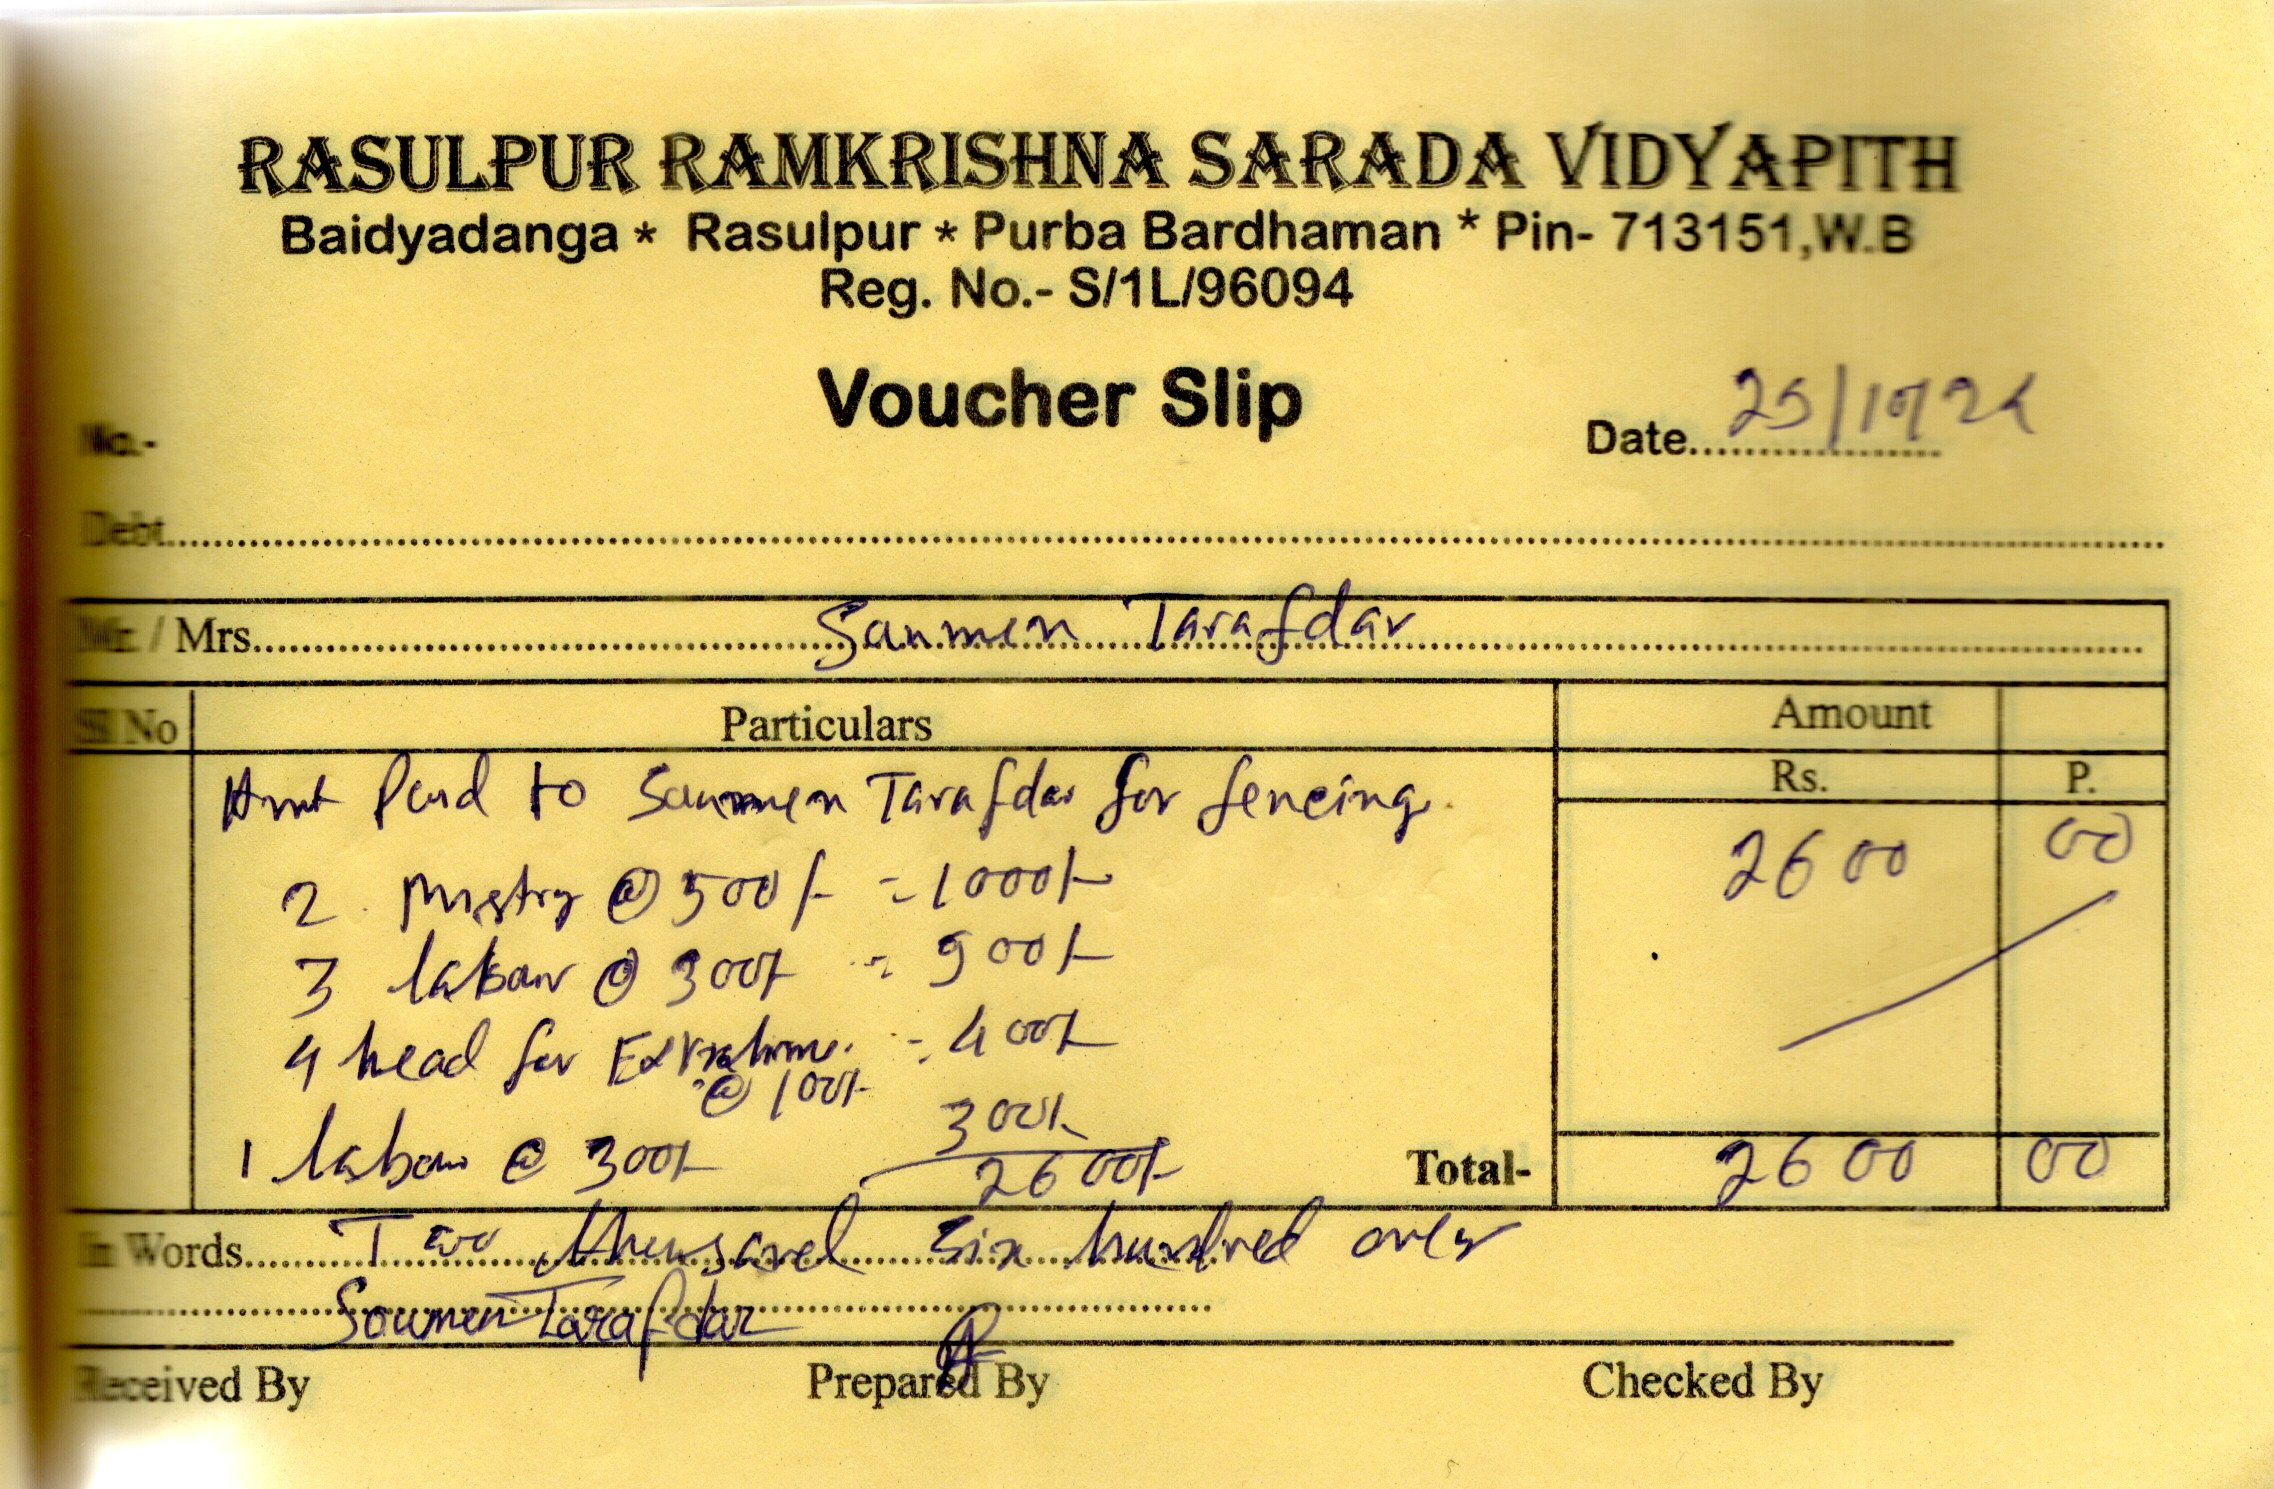 RASULPUR RAMKRISHNA SARADA VIDYAPITH
Baidyadanga * Rasulpur * Purba Bardhaman * Pin- 713151,W.B
Reg. No.- S/1L/96094
Voucher Slip
No.-
Date 25/10/24
Debt
Mr. / Mrs. Soumen Tarafdar
Sl No Particulars Amount
Rs. P.
Amt Paid to Soumen Tarafdar for fencing.
2600 00
2 Mistry @ 500/- = 1000/-
3 labour @ 300/- = 900/-
4 head for Extratime. = 400/-
@ 100/-
1 labour @ 300/- 300/-
2600/-
Total- 2600 00
In Words Two thousand Six hundred only
Soumen Tarafdar
Received By Prepared By Checked By